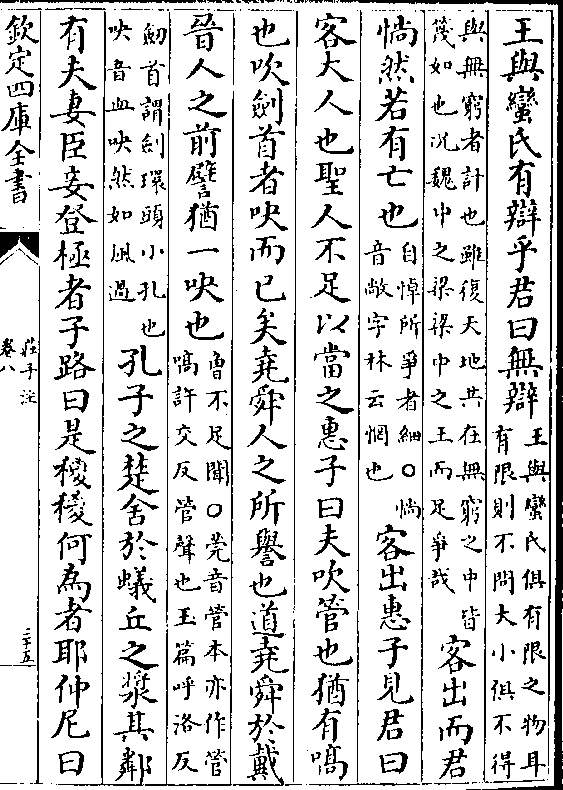 王與蠻氏有辯乎君曰無辯王與蠻氏俱有限之物耳有限則不問大小俱不得
與無窮者計也雖復天地共在無窮之中皆篾如也况魏中之梁梁中之王而足爭哉客出而君
惝然若有亡也自悼所爭者細〇惝音敞字林云惘也客出惠子見君曰
客大人也聖人不足以當之惠子曰夫吹管也猶有嗃
也吹劍首者吷而已矣堯舜人之所譽也道堯舜於戴
晉人之前譬猶一吷也曾不足聞〇筦音管本亦作管嗃許交反管聲也玉篇呼洛反
劒首謂劍環頭小孔也吷音血吷然如風過孔子之楚舍於蟻丘之漿其鄰
有夫妻臣妾登極者子路曰是稯稯何為者耶仲尼曰
欽定四庫全書
莊子注
卷八
三十五